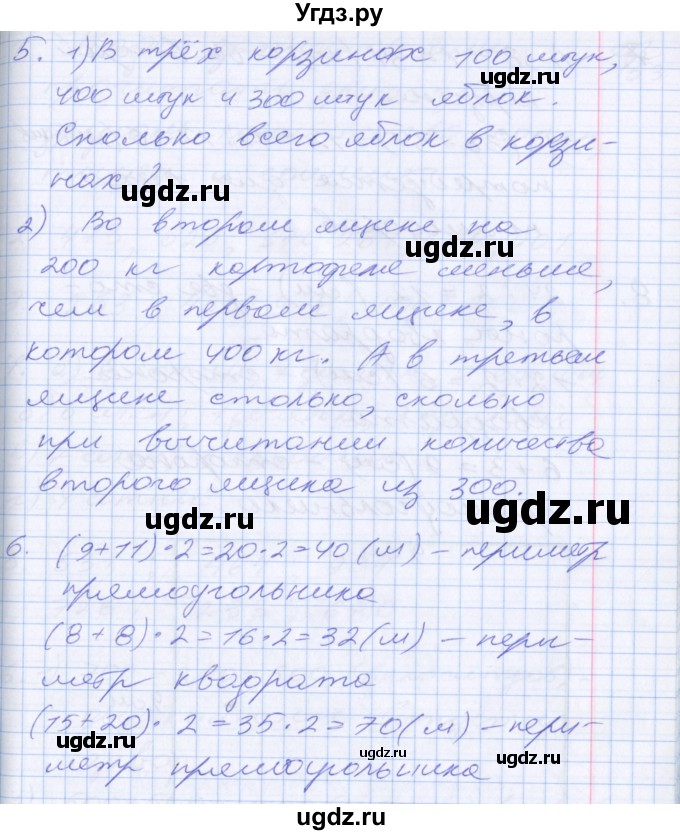 Угдз.ру
5. 1) В трёх корзинах 100 штук,
400 штук и 300 штук яблок.
Сколько всего яблок в корзи-
нах?
2) Во втором ящике на
200 кг картофеле меньше,
чем в первом ящике, в
котором 400 кг. А в третьем
ящике столько, сколько
при вычитании количества
второго ящика из 300.
6. (9+11)·2=20·2=40(м) – периметр
прямоугольника
(8+8)·2=16·2=32(м) – пери-
метр квадрата
(15+20)·2=35·2=70(м) – пери-
метр прямоугольника
ugdz.ru
ugdz.ru
ugdz.ru
ugdz.ru
ugdz.ru
ugdz.ru
ugdz.ru
ugdz.ru
ugdz.ru
ugdz.ru
ugdz.ru